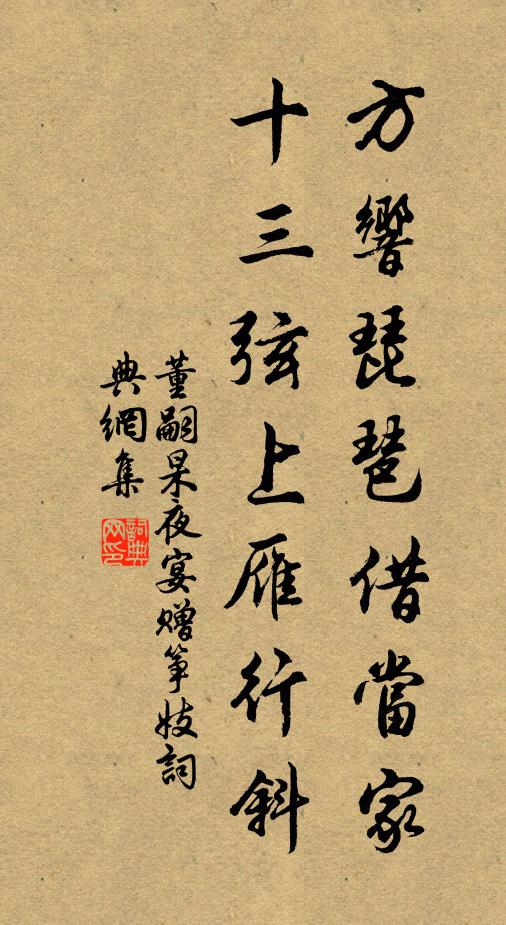 方響琵琶借當家
十三弦上雁行斜
董嗣杲夜宴贈箏妓詞
典網集
詞典網印